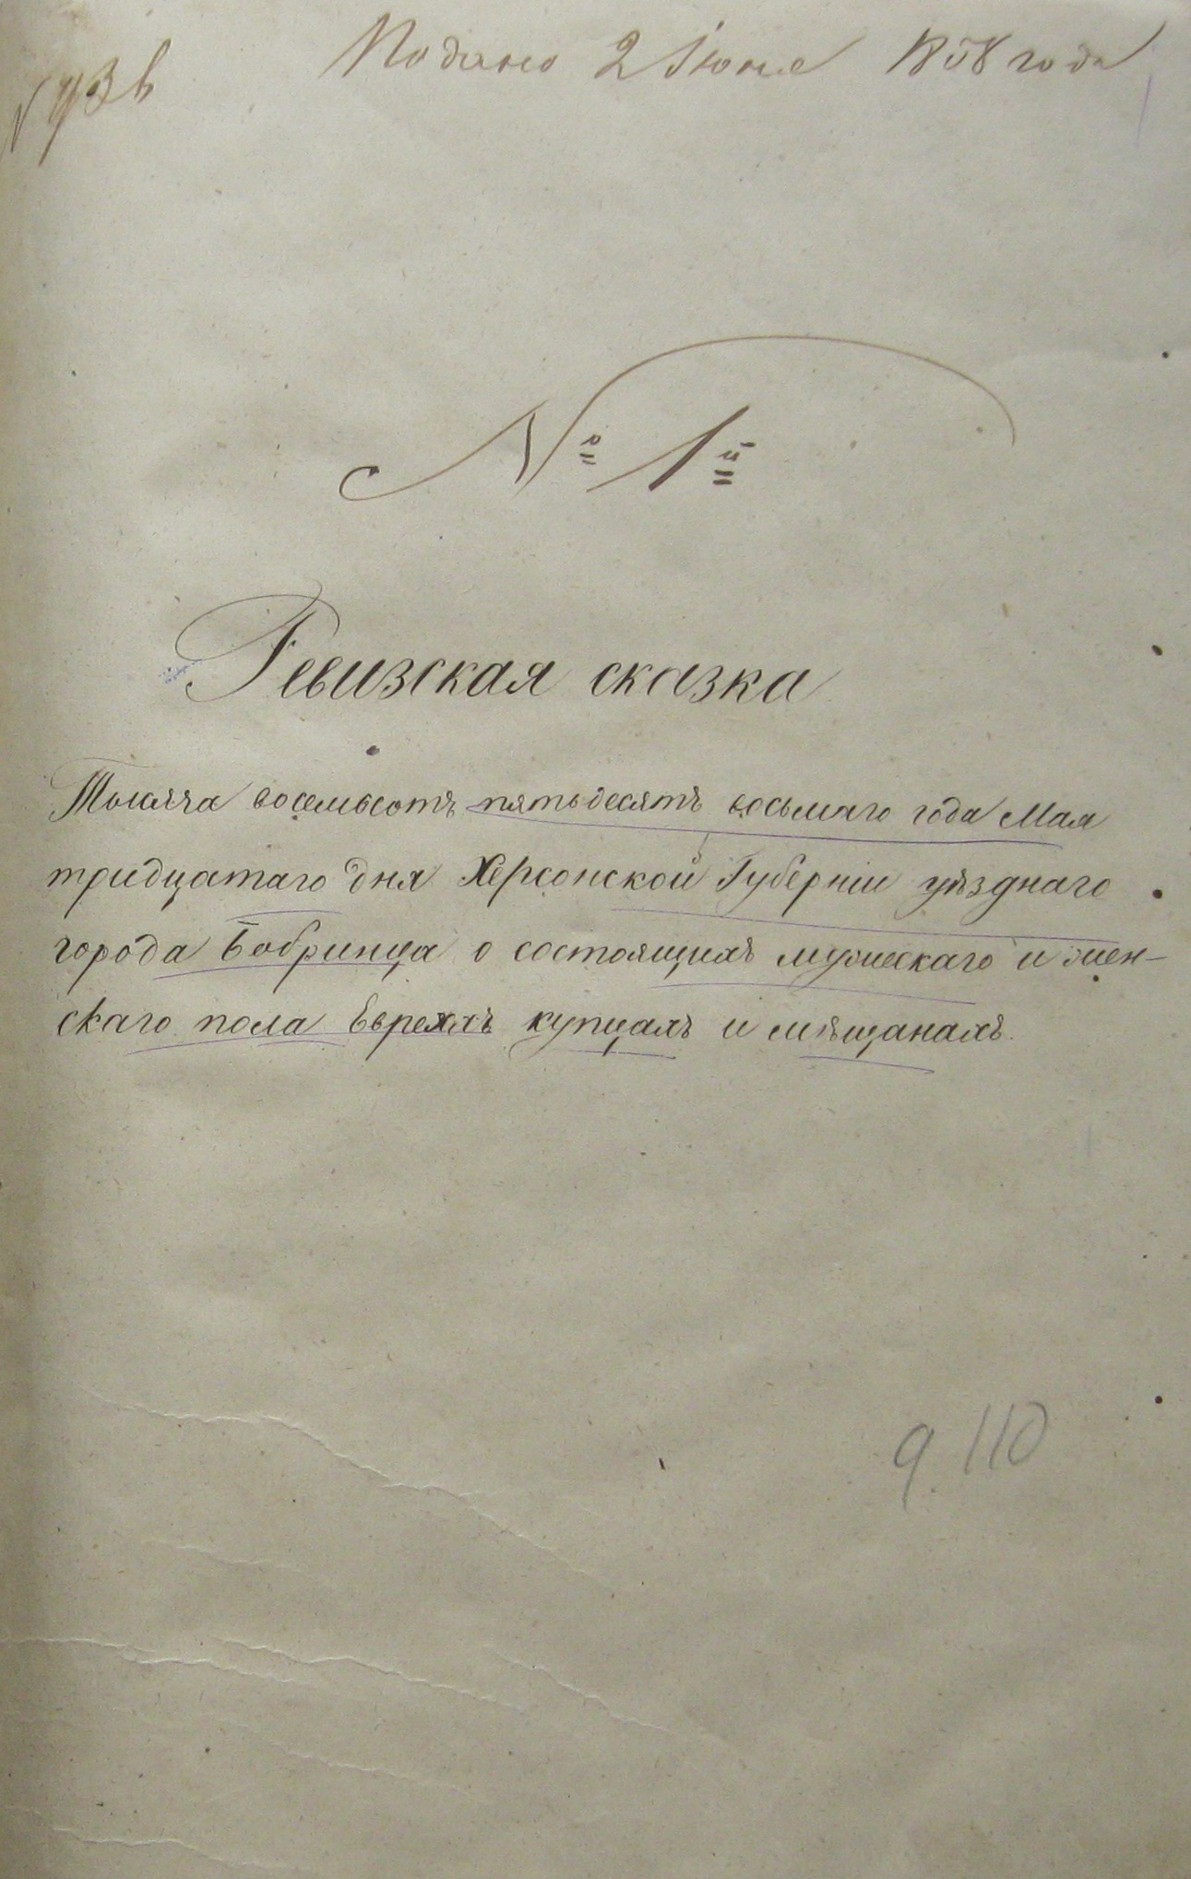 Подано 2 Іюня 1858 года
№ 1й
Ревизская сказка
Тысяча восемьсотъ пятьдесятъ восьмаго года Мая
тридцатаго дня Херсонской Губерніи уѣзднаго
города Бобринца о состоящихъ мужескаго и жен-
скаго пола Евреяхъ купцахъ и мѣщанахъ.
9 110